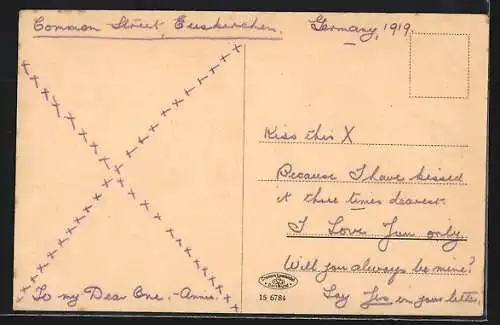 Common Street, Euskirchen. Germany, 1919.
Kiss this X
Because I have kissed
it three times dearest.
I Love You only.
Will you always be mine?
Say Yes in your letter.
To my Dear One. - Annie.
15 6784